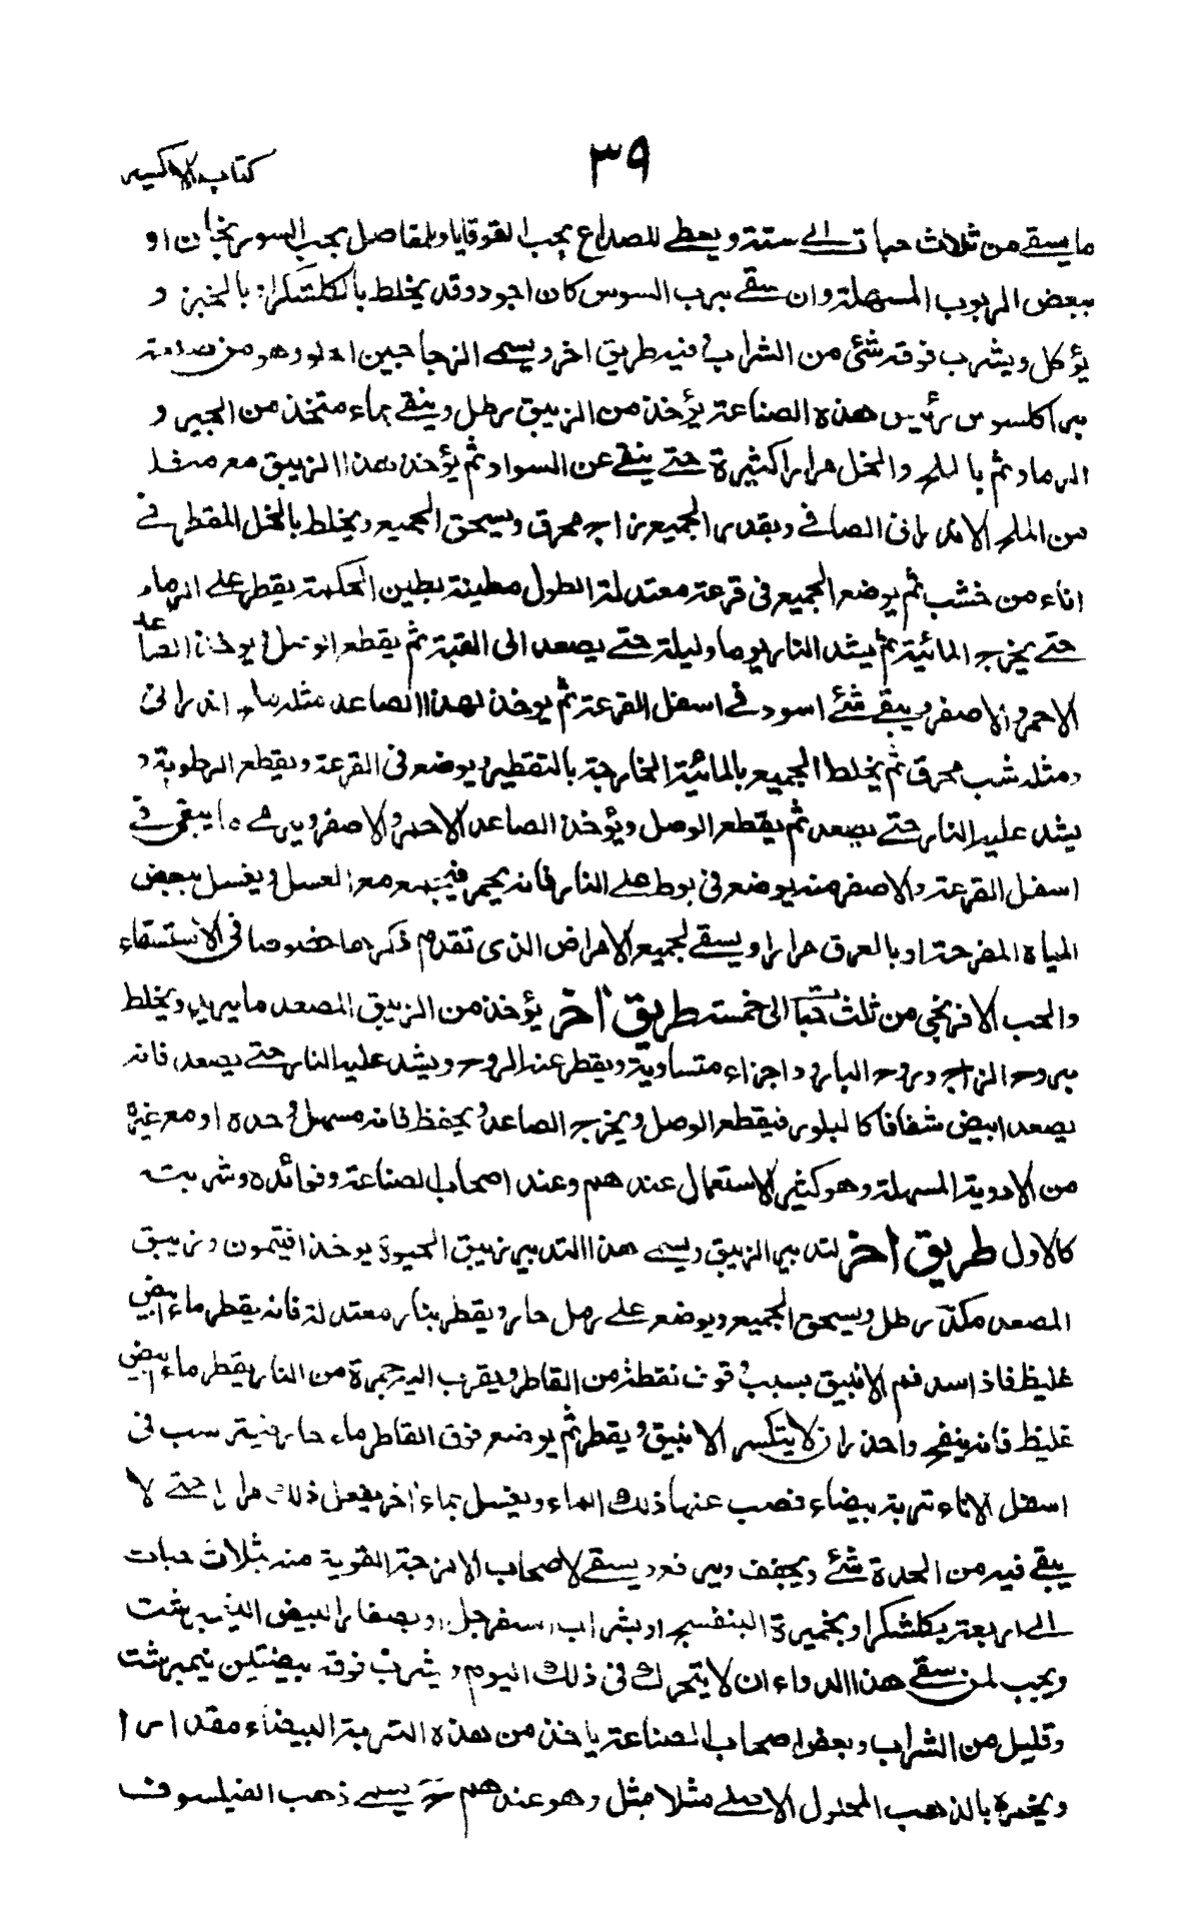 كتاب الاكسير
٣٩
ما يسقى من ثلاث حبات الى ستة ويعطى للصداع بحب القوقايا وللمفاصل بحب السورنجان او
ببعض الربوب المسهلة وان سقى برب السوس كان اجود وقد يخلط بالكلشكر او بالخبز و
يؤكل ويشرب فوقه شئ من الشراب فيه طريق اخر ويسمى الزجاجين الاول وهو من صنعة
براكلسوس رئيس هذه الصناعة يؤخذ من الزيبق رطل وينقى بماء متخذ من الجير و
الرماد ثم بالملح والخل مرارا كثيرة حتى ينقى عن السواد ثم يؤخذ هذا الزيبق مع مثله
من الملح الاندرانى الصافى وبقدر الجميع زاج محرق ويسحق الجميع ويخلط بالخل المقطر فى
اناء من خشب ثم يوضع الجميع فى قرعة معتدلة الطول مطينة بطين الحكمة يقطر على الرماد
حتى يخرج المائية ثم يشد النار يوما وليلة حتى يصعد الى القبة ثم يقطع الوصل ويوخذ الصاعد
الاحمر والاصفر ويبقى شئ اسود فى اسفل القرعة ثم يوخذ لهذا الصاعد مثله ملح اندرانى
ومثله شب محرق ثم يخلط الجميع بالمائية الخارجة بالتقطير ويوضع فى القرعة ويقطع الرطوبة و
يشد عليه النار حتى يصعد ثم يقطع الوصل ويؤخذ الصاعد الاحمر والاصفر ويرمى ما يبقى فى
اسفل القرعة والاصفر منه يوضع فى بوط على النار فانه يحمر فيجمع مع العسل ويغسل ببعض
المياه المفرحة او بالعرق مرارا ويسقى لجميع الامراض الذى تقدم ذكرها خصوصا فى الاستسقاء
والحب الافرنجى من ثلث حبات الى خمسة طريق اخر يؤخذ من الزيبق المصعد ما يريد ويخلط
بروح الزاج وروح البارود اجزاء متساوية ويقطر عنه الروح ويشد عليه النار حتى يصعد فانه
يصعد ابيض شفافا كالبلور فيقطع الوصل ويخرج الصاعد ويحفظ فانه مسهل وحده او مع غيره
من الادوية المسهلة وهو كثير الاستعمال عندهم وعند اصحاب الصناعة وفوائده وشربته
كالاول طريق اخر لتدبير الزيبق ويسمى هذا التدبير زيبق الحيوة يوخذ افيتمون وزيبق
المصعد مكد رطل ويسحق الجميع ويوضع على رمل حار ويقطر بنار معتدلة فانه يقطر ماء ابيض
غليظ فاذا سد فم الانبيق بسبب وقوف نقطة من القاطر ويقرب اليه جمرة من النار يقطر ماء ابيض
غليظ فانه ينفتح واحذر ان لا يتكسر الانبيق ويقطر ثم يوضع فوق القاطر ماء حار فيترسب فى
اسفل الاناء تربة بيضاء فصب عنها ذلك الماء ويغسل بماء اخر يفعل ذلك مرارا حتى لا
يبقى فيه من الحدة شئ ويجفف ويرفع ويسقى لاصحاب الامزجة القوية منه بثلاث حبات
الى اربعة بكلشكر او بخميرة البنفسج او بشراب السفرجل او بصفار البيض النيمبرشت
ويجب لمن سقى هذا الدواء ان لا يتحرك فى ذلك اليوم ويشرب فوقه بيضتين نيمبرشت
وقليل من الشراب وبعض اصحاب الصناعة ياخذ من هذه التربة البيضاء مقدارا
ويخمره بالذهب المحلول الاصلى مثلا بمثل وهو عندهم يسمى ذهب الفيلسوف